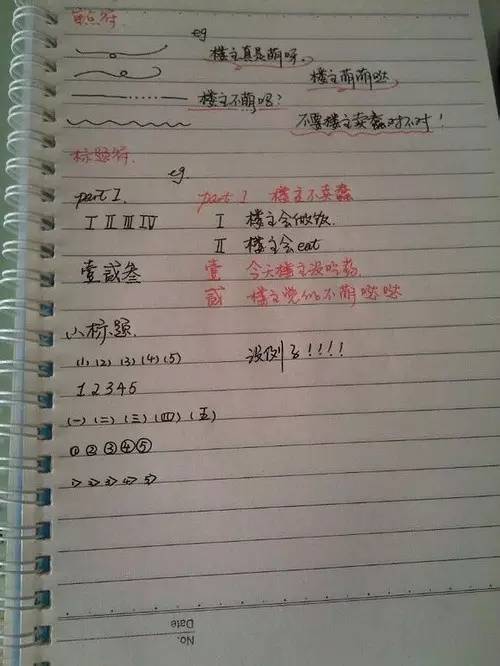 重点符
eg
楼主真是萌呀。
楼主萌萌哒
楼主不萌吗?
不要楼主卖蠢对不对!
标题符.
eg.
part 1. part 1 楼主不卖蠢
Ⅰ Ⅱ Ⅲ Ⅳ Ⅰ 楼主会做饭
Ⅱ 楼主会eat
壹 贰 叁 壹 今天楼主没吃药
贰 楼主觉得不萌哒哒
小标题.
(1) (2) (3) (4) (5) 没例了!!!!
1 2 3 4 5
(一) (二) (三) (四) (五)
① ② ③ ④ ⑤
1> 2> 3> 4> 5>
Date
No.